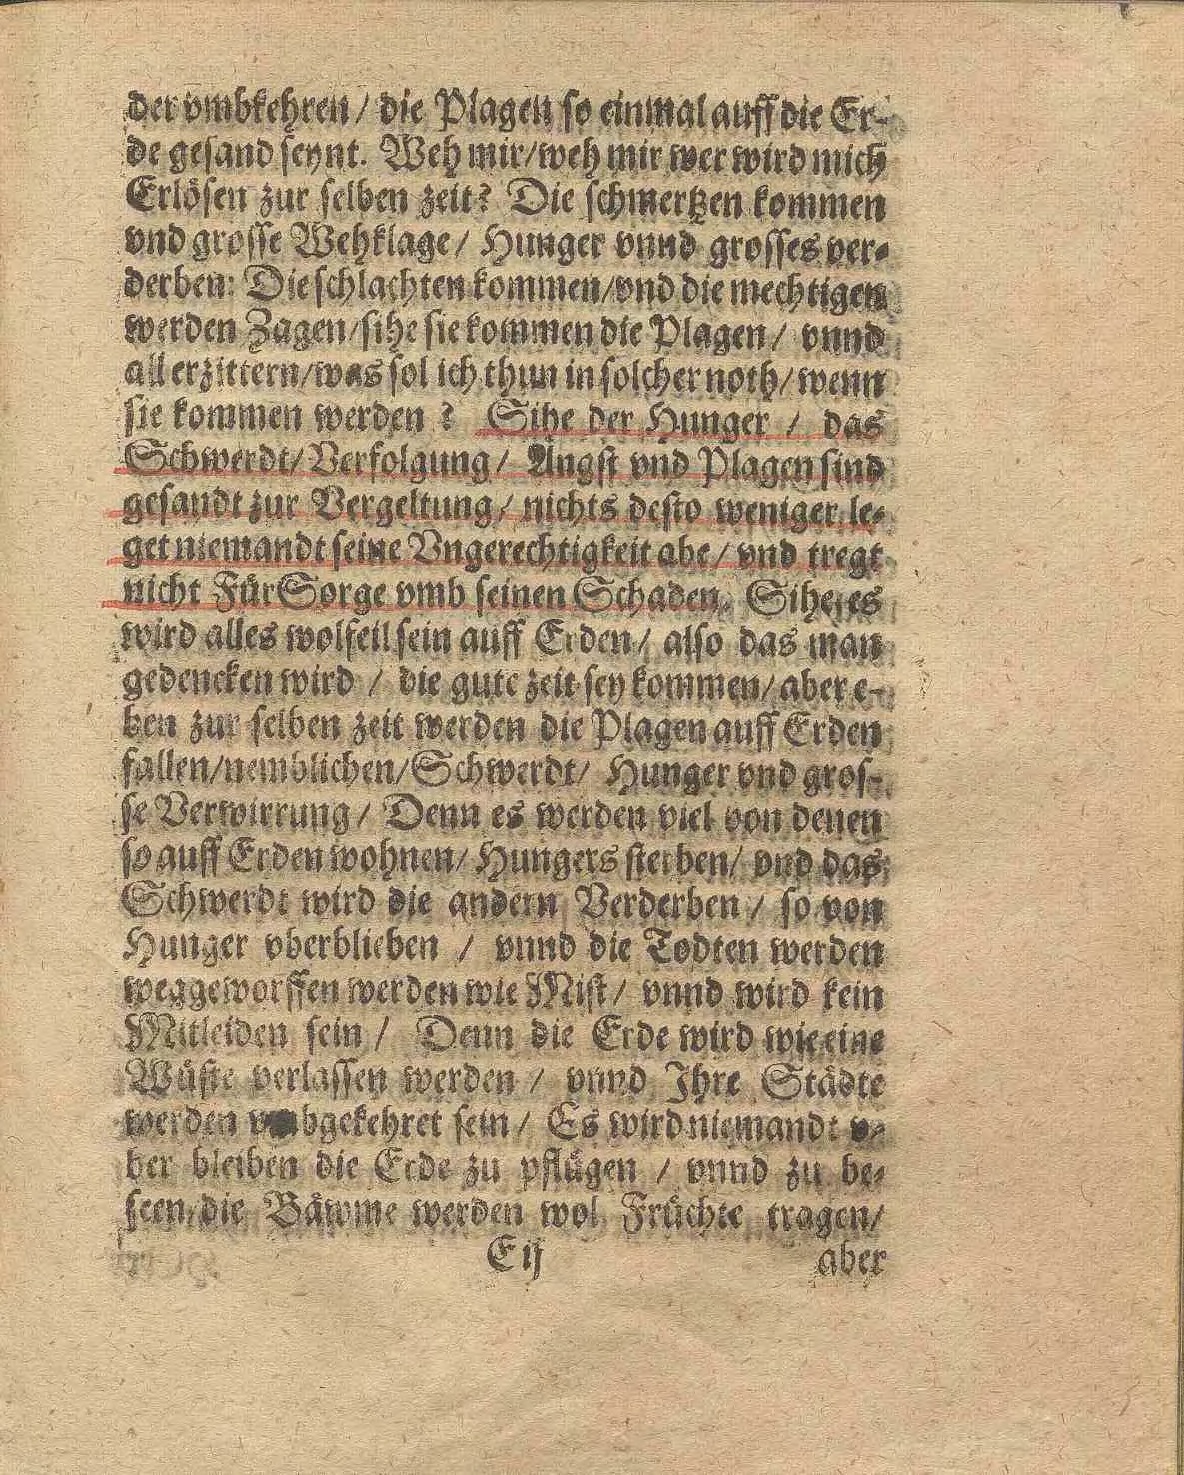 der vmbkehren / die Plagen so einmal auff die Er-
de gesand seynt. Weh mir/weh mir wer wird mich
Erlösen zur selben zeit? Die schmertzen kommen
vnd grosse Wehklage/ Hunger vnnd grosses ver-
derben: Die schlachten kommen/vnd die mechtigen
werden Zagen/sihe sie kommen die Plagen / vnnd
all erzittern/was sol ich thun in solcher noth/ wenn
sie kommen werden ? Sihe der Hunger / das
Schwerdt/ Verfolgung/ Angst vnd Plagen sind
gesandt zur Vergeltung/ nichts desto weniger le-
get niemandt seine Vngerechtigkeit abe/ vnd tregt
nicht FürSorge vmb seinen Schaden. Sihe es
wird alles wolfeil sein auff Erden/ also das man
gedencken wird / die gute zeit sey kommen/ aber e-
ben zur selben zeit werden die Plagen auff Erden
fallen/nemblichen/Schwerdt/ Hunger vnd gros-
se Verwirrung/ Denn es werden viel von denen
so auff Erden wohnen/ Hungers sterben/ vnd das
Schwerdt wird die andern Verderben / so von
Hunger vberblieben / vnnd die Todten werden
weggeworffen werden wie Mist/ vnnd wird kein
Mitleiden sein / Denn die Erde wird wie eine
Wüste verlassen werden / vnnd Ihre Städte
werden vmbgekehret sein / Es wird niemandt v-
ber bleiben die Erde zu pflügen / vnnd zu be-
seen/die Bäwme werden wol Früchte tragen/
E ij aber